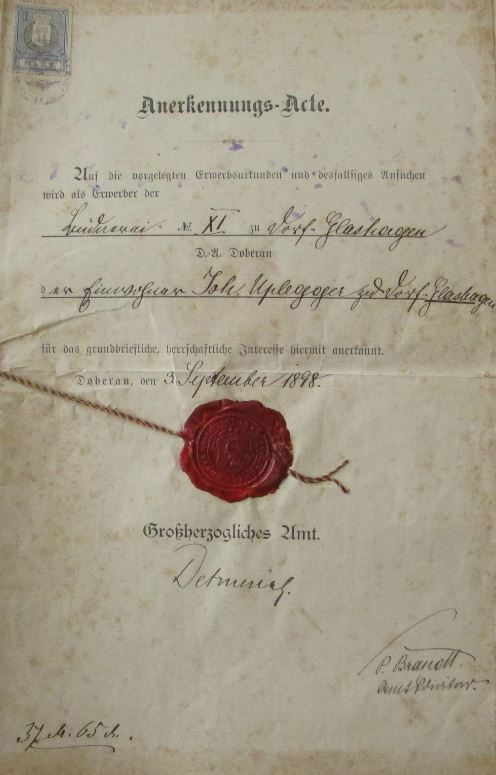 1 1
MARK
Anerkennungs-Acte.
Auf die vorgelegten Erwerbsurkunden und desfallsiges Ansuchen
wird als Erwerber der
Büdnerei № XI zu Dorf-Glashagen
D.-A. Doberan
der Einwohner Joh. Uplegger zu Dorf-Glashagen
für das grundbriefliche, herrschaftliche Interesse hiermit anerkannt.
Doberan, den 3 September 1898.
Großherzogliches Amt.
P. Brandt.
37 M. 65